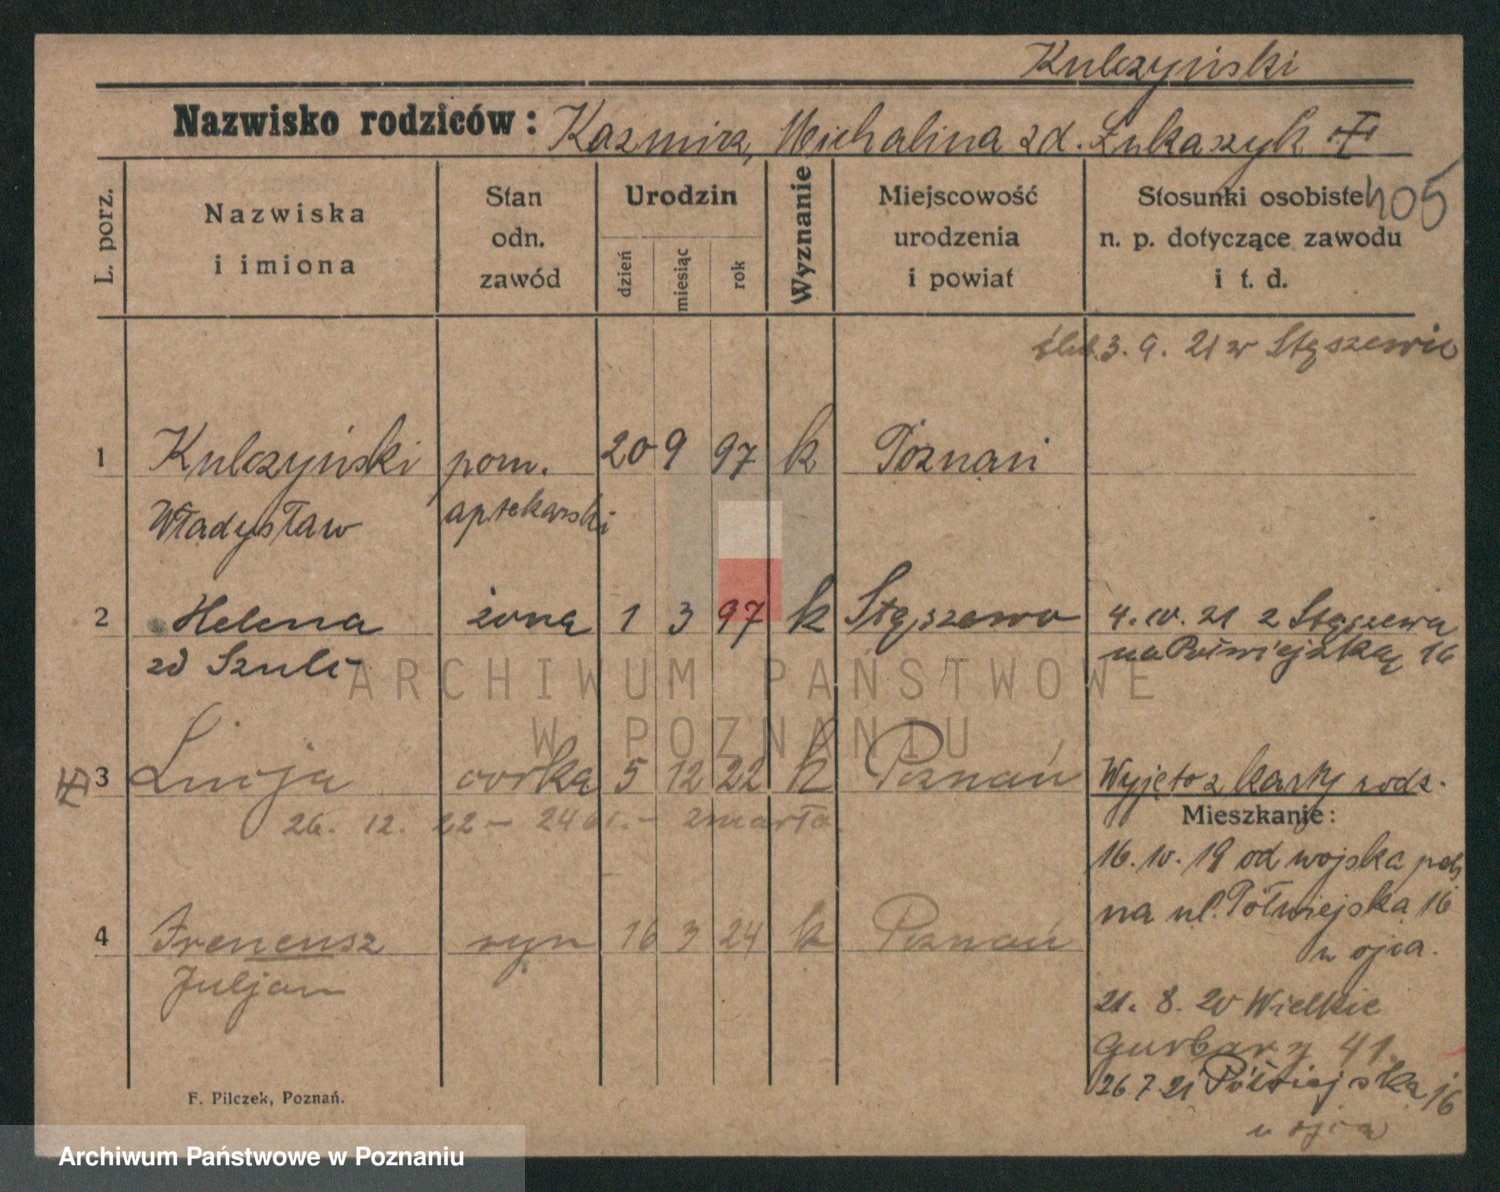 Kulczyński
Nazwisko rodziców: Kazmirz, Michalina zd. Łukaszyk
405
L. porz.
Nazwiska
i imiona
Stan
odn.
zawód
Urodzin
dzień
miesiąc
rok
Wyznanie
Miejscowość
urodzenia
i powiat
Stosunki osobiste
n. p. dotyczące zawodu
i t. d.
ślub. 3. 9. 21 w Stęszewie
1 Kulczyński pom. 20 9 97 k Poznań
Władysław aptekarski
2 Helena żona 1 3 97 k Stęszewo 4. IV. 21 z Stęszewa
zd Szulc na Półwiejską 16
3 Lucja córka 5 12 22 k Poznań Wyjęto z karty rodz.
26. 12. 22 – zmarła.
Mieszkanie:
16. IV. 19 od wojska
na ul. Półwiejska 16
u ojca.
4 Ireneusz syn 16 3 24 k Poznań
Juljan
21. 8. 20 Wielkie
Garbary 41.
26 7 21 Półwiejska 16
u ojca
F. Pilczek, Poznań.
ARCHIWUM PAŃSTWOWE
W POZNANIU
Archiwum Państwowe w Poznaniu